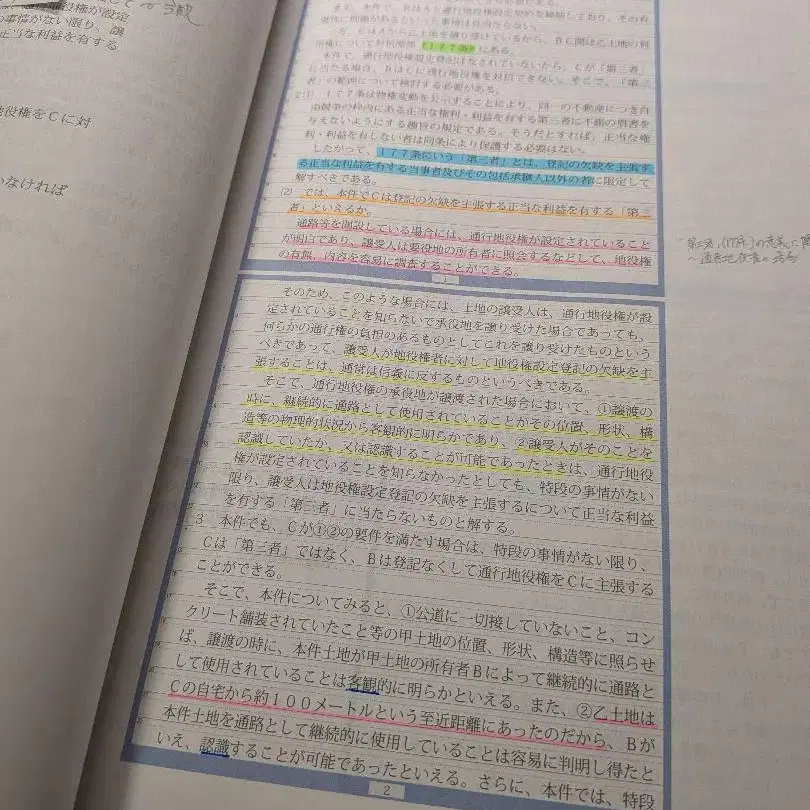 権が設定
の事情がない限り、
正当な利益を有する
地役権をCに対
いなければ
方、CはAから乙土地を譲り受けているから、BC間は乙土地の利
177条
にある。
本件で、通行地役権設定登記はなされていないから、Cが「第三者」
に当たる場合、BはCに通行地役権を対抗できない。そこで、「第三
者」の範囲について検討する必要がある。
177条は物権変動を公示することにより、同一の不動産につき自
由競争の枠内にある正当な権利・利益を有する第三者に不測の損害を
与えないようにする趣旨の規定である。そうだとすれば、正当な権
利・利益を有しない者は同条により保護する必要はない。
したがって、177条にいう「第三者」とは、登記の欠缺を主張す
る正当な利益を有する当事者及びその包括承継人以外の者に限定して
解すべきである。
(2) では、本件でCは登記の欠缺を主張する正当な利益を有する「第三
者」といえるか。
通路等を開設している場合には、通行地役権が設定されていること
が明白であり、譲受人は要役地の所有者に照会するなどして、地役権
の有無、内容を容易に調査することができる。
1
そのため、このような場合には、土地の譲受人は、通行地役権が設
定されていることを知らないで承役地を譲り受けた場合であっても、
何らかの通行権の負担のあるものとしてこれを譲り受けたものという
べきであって、譲受人が地役権者に対して地役権設定登記の欠缺を主
張することは、通常は信義に反するものというべきである。
そこで、通行地役権の承役地が譲渡された場合において、①譲渡の
時に、継続的に通路として使用されていることがその位置、形状、構
造等の物理的状況から客観的に明らかであり、②譲受人がそのことを
認識していたか、又は認識することが可能であったときは、通行地役
権が設定されていることを知らなかったとしても、特段の事情がない
限り、譲受人は地役権設定登記の欠缺を主張するについて正当な利益
を有する「第三者」に当たらないものと解する。
3 本件でも、Cが①②の要件を満たす場合は、特段の事情がない限り、
Cは「第三者」ではなく、Bは登記なくして通行地役権をCに主張する
ことができる。
そこで、本件についてみると、①公道に一切接していないこと、コン
クリート舗装されていたこと等の甲土地の位置、形状、構造等に照らせ
ば、譲渡の時に、本件土地が甲土地の所有者Bによって継続的に通路と
して使用されていることは客観的に明らかといえる。また、②乙土地は
Cの自宅から約100メートルという至近距離にあったのだから、Bが
本件土地を通路として継続的に使用していることは容易に判明し得たと
いえ、認識することが可能であったといえる。さらに、本件では、特段
2